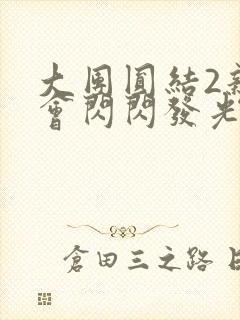 大團圓結2
會閃閃發光
倉田三之路